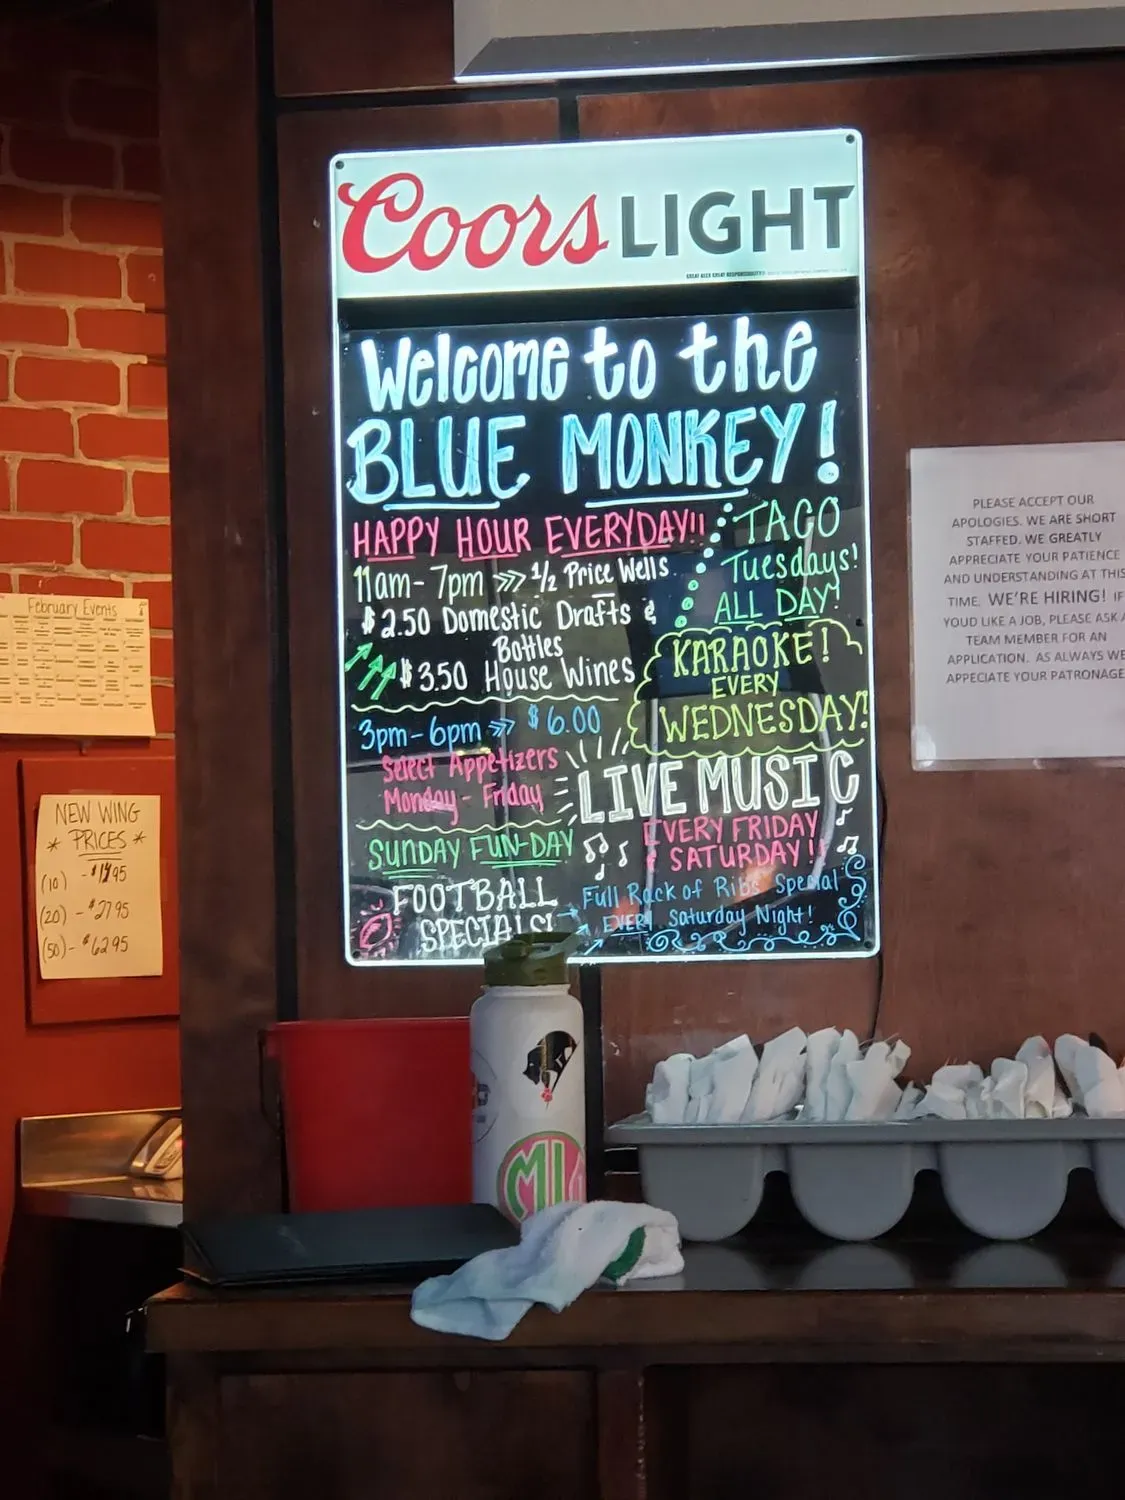 Coors LIGHT
Welcome to the
BLUE MONKEY!
HAPPY HOUR EVERYDAY!!
11am-7pm >>> 1/2 Price Wells
$2.50 Domestic Drafts &
Bottles
$3.50 House Wines
3pm-6pm >>> $6.00
Select Appetizers
Monday - Friday
SUNDAY FUN-DAY
FOOTBALL
SPECIALS!
TACO
Tuesdays!
ALL DAY!
KARAOKE!
EVERY
WEDNESDAY!
LIVE MUSIC
EVERY FRIDAY
& SATURDAY!!
Full Rack of Ribs Special
EVERY Saturday Night!
February Events
NEW WING
* PRICES *
(10) - $1495
(20) - $2795
(50) - $6295
PLEASE ACCEPT OUR
APOLOGIES. WE ARE SHORT
STAFFED. WE GREATLY
APPRECIATE YOUR PATIENCE
AND UNDERSTANDING AT THIS
TIME. WE'RE HIRING! IF
YOUD LIKE A JOB, PLEASE ASK A
TEAM MEMBER FOR AN
APPLICATION. AS ALWAYS WE
APPECIATE YOUR PATRONAGE